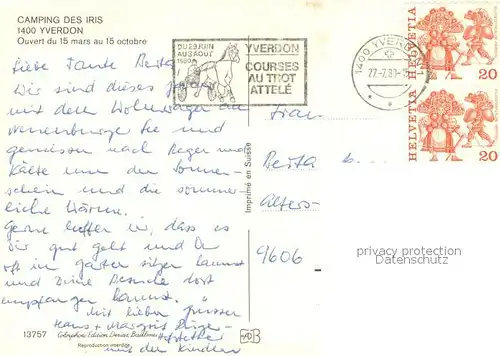 CAMPING DES IRIS
1400 YVERDON
Ouvert du 15 mars au 15 octobre
Liebe Tante Berta
Wir sind dieses Jahr
mit dem Wohnwagen am
Neuenburger See und
geniessen nach Regen und
Kälte nun den Sonnen-
schein und die sommer-
liche Wärme.
Gerne hoffen wir, dass es
Dir gut geht und Du
oft im Garten sitzen kannst
und Deine Besuche dort
empfangen kannst.
Mit lieben Grüssen
Hans + Margrit
mit den Kindern
13757
Reproduction interdite
Imprimé en Suisse
DU 29 JUIN
AU 3 AOUT
1980
YVERDON
COURSES
AU TROT
ATTELÉ
1400 YVERDON
HELVETIA
20
HELVETIA
20
Frau
Berta
Alters-
9606
privacy protection
Datenschutz